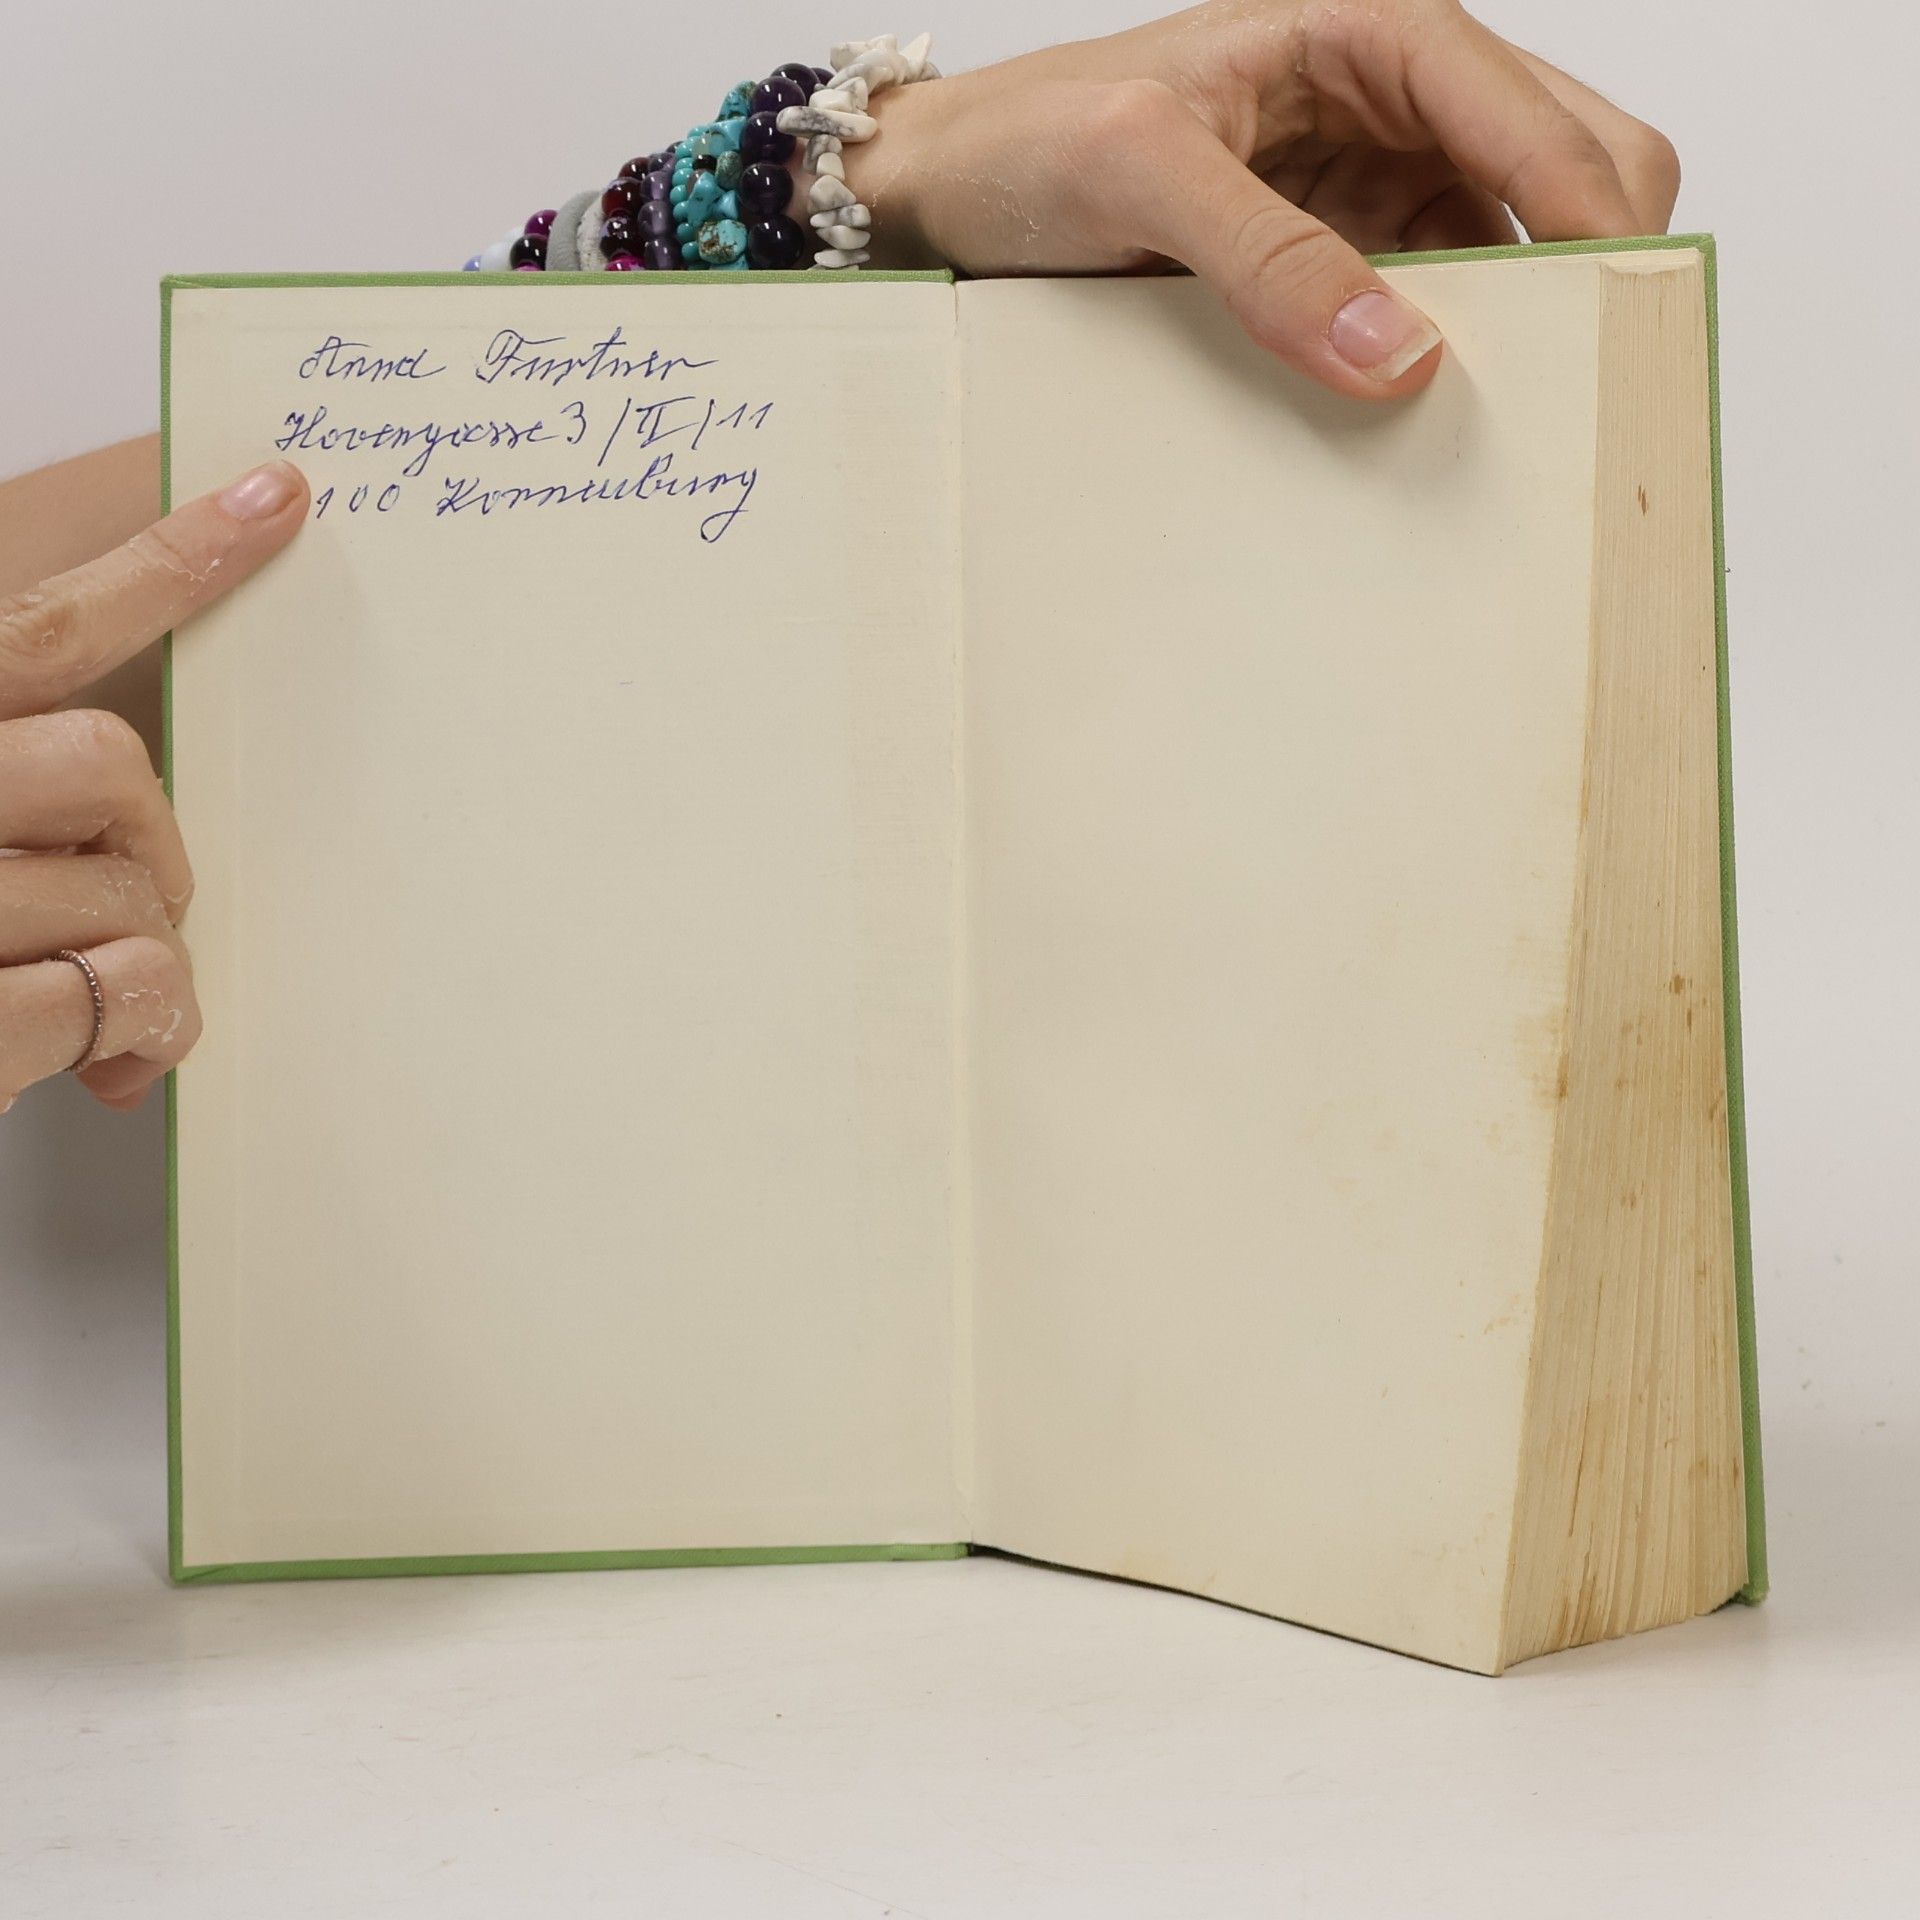 Anna Furtner
Hovengasse 3/II/11
100 Korneuburg